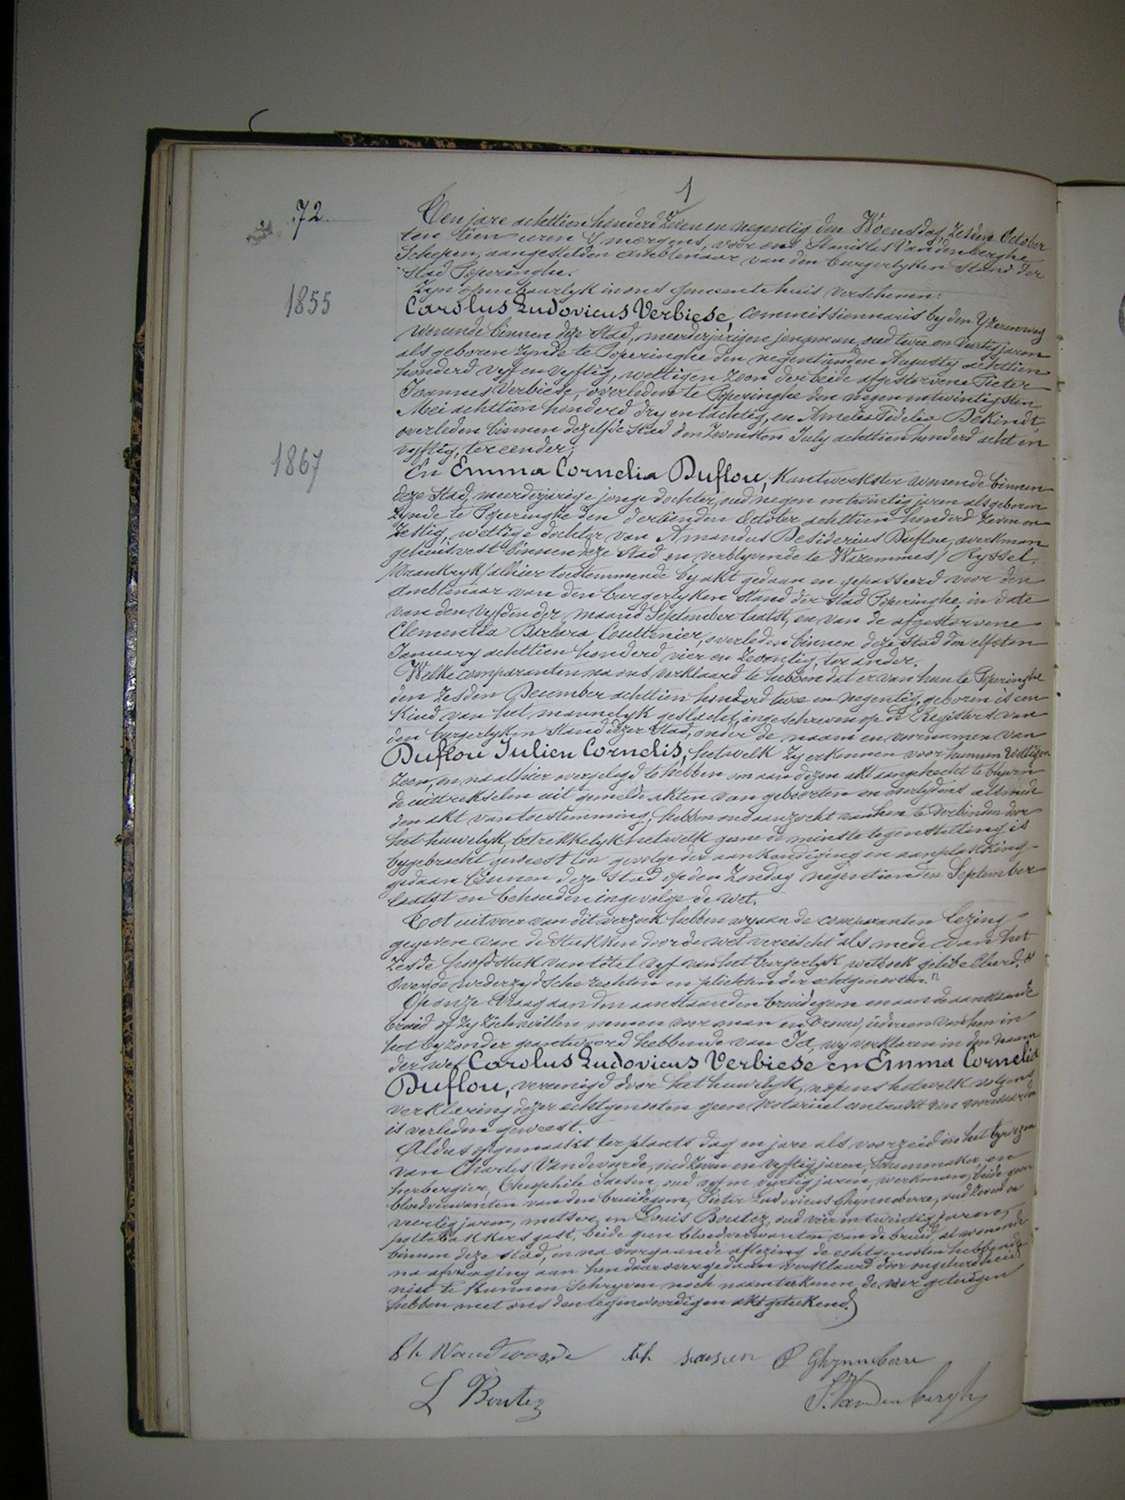 1
72
Ten jare achttien honderd zeven en negentig den Woensdag zesden October
ten tien uren 's morgens, voor ons Stanislas Vandenberghe
Schepen, aangestelden ambtenaar van den burgerlyken Stand der
Stad Poperinghe.
Zyn openbaarlyk in ons gemeente huis verschenen:
1855
Carolus Ludovicus Verbiese, commissionnaris by den Yzerenweg
wonende binnen deze Stad, meerderjarigen jongman, oud twee en veertig jaren
als geboren zynde te Poperinghe den negentienden Augusty achttien
honderd vyf en vyftig, wettigen zoon der beide afgestorvene Pieter
Joannes Verbiese, overleden te Poperinghe den negen en twintigsten
Mei achttien honderd dry en tachtig, en Amelia Fidelia Dekindt,
overleden binnen dezelfde Stad den zevensten July achttien honderd acht en
vyftig, ter eender;
1867
En Emma Cornelia Duflou, Kantwerkster wonende binnen
deze Stad, meerderjarige jonge dochter, oud negen en twintig jaren als geboren
zynde te Poperinghe den dertienden October achttien honderd zeven en
zestig, wettige dochter van Amandus Desiderius Duflou, werkman
gehuisvest binnen deze Stad en verblyvende te Wazemmes / Ryssel
/Vrankryk/ alhier toestemmende by akt gedaan en gepasseerd voor den
Ambtenaar van den burgerlyken Stand der Stad Poperinghe, in date
van den vyfden der maand September laatst, en van de afgestorvene
Clementia Barbara Coultenier, overleden binnen deze Stad den elfsten
January achttien honderd vier en zeventig, ter ander.
Welke comparanten na ons verklaard te hebben dat er van hun te Poperinghe
den zesden December achttien honderd twee en negentig, geboren is een
Kind van het mannelyk geslacht, ingeschreven op de Registers van
den burgerlyken Stand dezer Stad, onder de naam en voornamen van
Duflou Julien Cornelis, hetwelk zy erkennen voor hunnen wettigen
zoon, en na alhier overgelegd te hebben om aan dezen akt aangehecht te blyven
de uittrekselen uit gemelde akten van geboorten en overlydens alsmede
den akt van toestemming, hebben ons aanzocht van hen te verbinden door
het huwelyk, betrekkelyk hetwelk geene de minste tegenstelling is
bygebracht geweest ten gevolge der aankondiging en aanplakking
gedaan binnen deze Stad op den Zondag negentienden September
laatst en behouden ingevolge de wet.
Tot uitvoer van dit verzoek hebben wy aan de comparanten lezing
gegeven van de stukken door de wet vereischt als mede van het
zesde hoofdstuk van titel vyf van het burgerlyk wetboek gelibelleerd
over de wederzydsche rechten en plichten der echtgenooten.
Op onze vraag aan den aanstaanden bruidegom en aan de aanstaande
bruid of zy zich willen nemen voor man en vrouw, iedereen van hen in
het byzonder geantwoord hebbende van Ja, wy verklaren in den naam
der wet Carolus Ludovicus Verbiese en Emma Cornelia
Duflou, vereenigd door het huwelyk, nopens hetwelk volgens
verklaring dezer echtgenooten geen notarieel contrakt van voorwaarden
is verleden geweest.
Aldus opgemaakt ter plaats dag en jare als voorzeid in het byzyn
van Charles Vandevoorde, oud zeven en vyftig jaren, schoenmaker, en
herbergier, Theophile Saesen, oud vyf en vyftig jaren, werkman, beide geen
bloedverwanten van den bruidegom, Pieter Ludovicus Ghynneberre, oud zeven en
veertig jaren, metser, en Louis Boutez, oud vier en twintig jaren,
pottebakkers gast, beide geen bloedverwanten van de bruid, al wonende
binnen deze stad, en na voorgaande aflezing de echtgenooten hebbende
na afvraging aan hen daarover gedaan verklaard door ongeleerdheid
niet te kunnen schryven noch naamteekenen, de vier getuigen
hebben met ons den tegenwoordigen akt geteekend.
Ch Vandevoorde Th saesen P Ghynneberre
L Boutez S. Vandenberghe